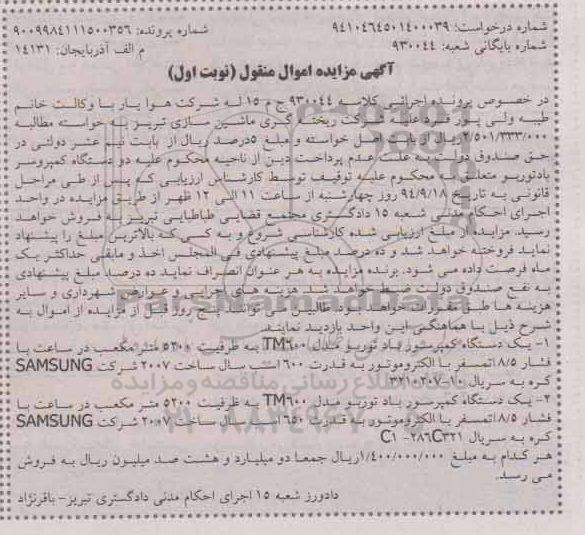 شماره درخواست: ۹۴۱۰۴۶۴۵۰۱۴۰۰۰۳۹
شماره پرونده: ۹۰۰۹۹۸۴۱۱۱۵۰۰۳۵۶
شماره بایگانی شعبه: ۹۳۰۰۴۴
م الف آذربایجان: ۱۴۱۳۱
آگهی مزایده اموال منقول (نوبت اول)
در خصوص پرونده اجرائی کلاسه ۹۳۰۰۴۴ ج م ۱۵ له شرکت هوا یار با وکالت خانم
طیبه ولی پور طرد علیه شرکت ریخته گری ماشین سازی تبریز به خواسته مطالبه
۲/۵۰۱/۳۳۳/۰۰۰ ریال از بابت اصل خواسته و مبلغ ۵درصد ریال از بابت نیم عشر دولتی در
حق صندوق دولت به علت عدم پرداخت دین از ناحیه محکوم علیه دو دستگاه کمپرسور
بادتوربو متعلق به محکوم علیه توقیف توسط کارشناس ارزیابی که پس از طی مراحل
قانونی به تاریخ ۹۴/۹/۱۸ روز چهارشنبه از ساعت ۱۱ الی ۱۲ ظهر از طریق مزایده در واحد
اجرای احکام مدنی شعبه ۱۵ دادگستری مجتمع قضایی طباطبایی تبریز به فروش خواهد
رسید. مزایده از مبلغ ارزیابی شده کارشناسی شروع و به کسی که بالاترین مبلغ را پیشنهاد
نماید فروخته خواهد شد و ده درصد مبلغ پیشنهادی فی المجلس اخذ و مابقی حداکثر یک
ماه فرصت داده می شود. برنده مزایده به هر عنوان انصراف نماید ده درصد مبلغ پیشنهادی
به نفع صندوق دولت ضبط خواهد شد. هزینه های اجرایی و عوارض شهرداری و سایر
هزینه ها طبق مقررات خواهد بود. طالبین می توانند پنج روز قبل از مزایده از اموال به
شرح ذیل با هماهنگی این واحد بازدید نمایند.
۱- یک دستگاه کمپرسور باد توربو مدل TM۶۰۰ به ظرفیت ۵۲۰۰ متر مکعب در ساعت با
فشار ۸/۵ اتمسفر با الکتروموتور به قدرت ۶۰۰ اسب سال ساخت ۲۰۰۷ شرکت SAMSUNG
کره به سریال ۱۰-۳۲۱۰۲۰۷
۲- یک دستگاه کمپرسور باد توربو مدل TM۶۰۰ به ظرفیت ۵۲۰۰ متر مکعب در ساعت با
فشار ۸/۵ اتمسفر با الکتروموتور به قدرت ۶۵۰ اسب سال ساخت ۲۰۰۷ شرکت SAMSUNG
کره به سریال C۱ -۲۸۶C۳۲۱
هر کدام به مبلغ ۱/۴۰۰/۰۰۰/۰۰۰ریال جمعا دو میلیارد و هشت صد میلیون ریال به فروش
می رسد.
دادورز شعبه ۱۵ اجرای احکام مدنی دادگستری تبریز- باقرنژاد
ParsNamadData